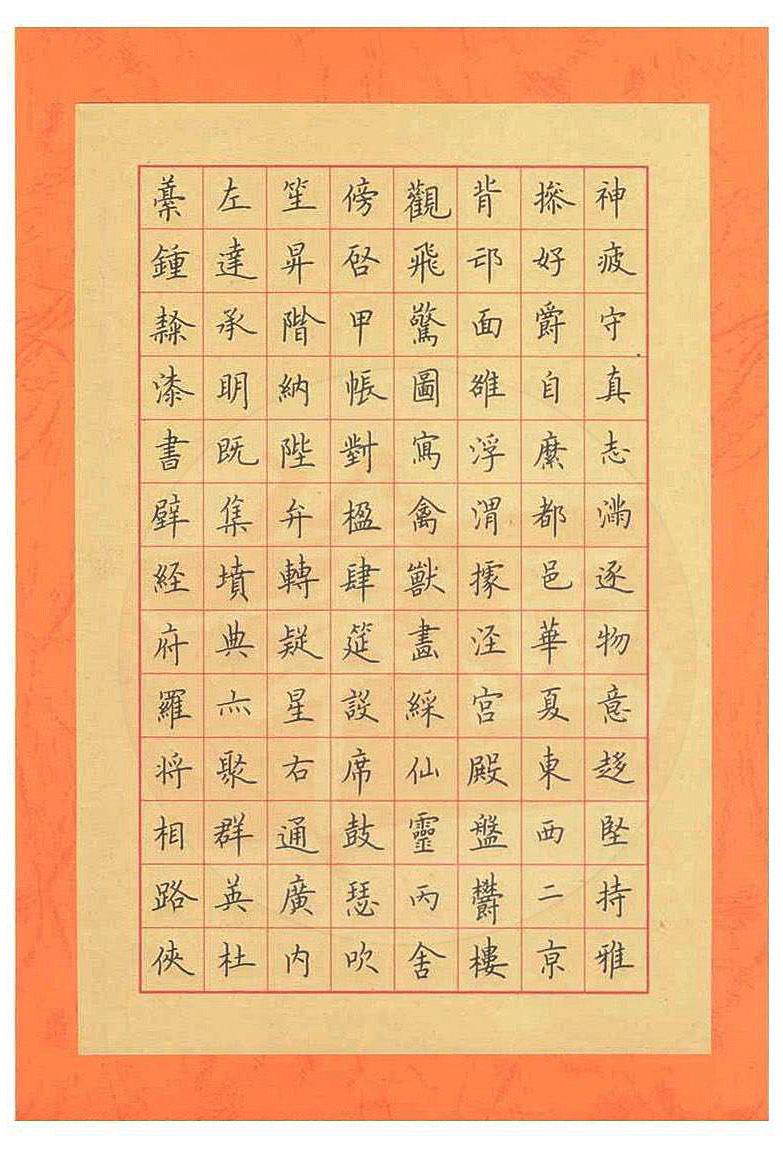 神疲守真志滿逐物意趍堅持雅
摻好爵自縻都邑華夏東西二亰
背邙面雒浮渭據涇宮殿盤鬱樓
觀飛驚圖寫禽獸畫綵仙靈丙舍
傍啓甲帳對楹肆筵設席鼓瑟吹
笙昇階納陛弁轉疑星右通廣内
左達承明既集墳典亦聚群英杜
藁鍾隸漆書壁経府羅将相路俠